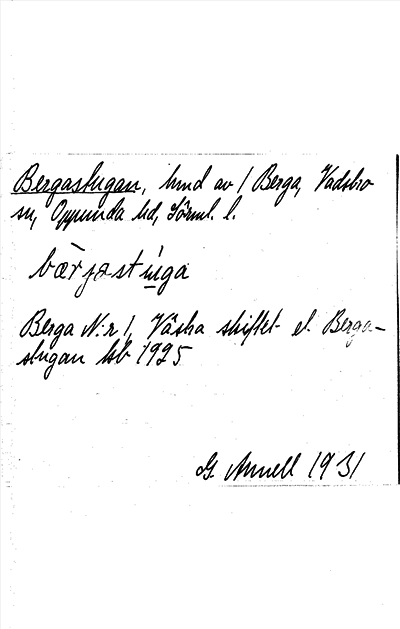 Bergastugan, hmd av 1 Berga, Vadsbro
sn, Oppunda hd, Törml. l.
bærjastuga
Berga N:r 1, Västra skiftet el. Berga-
stugan hb 1925
G. Annell 1931